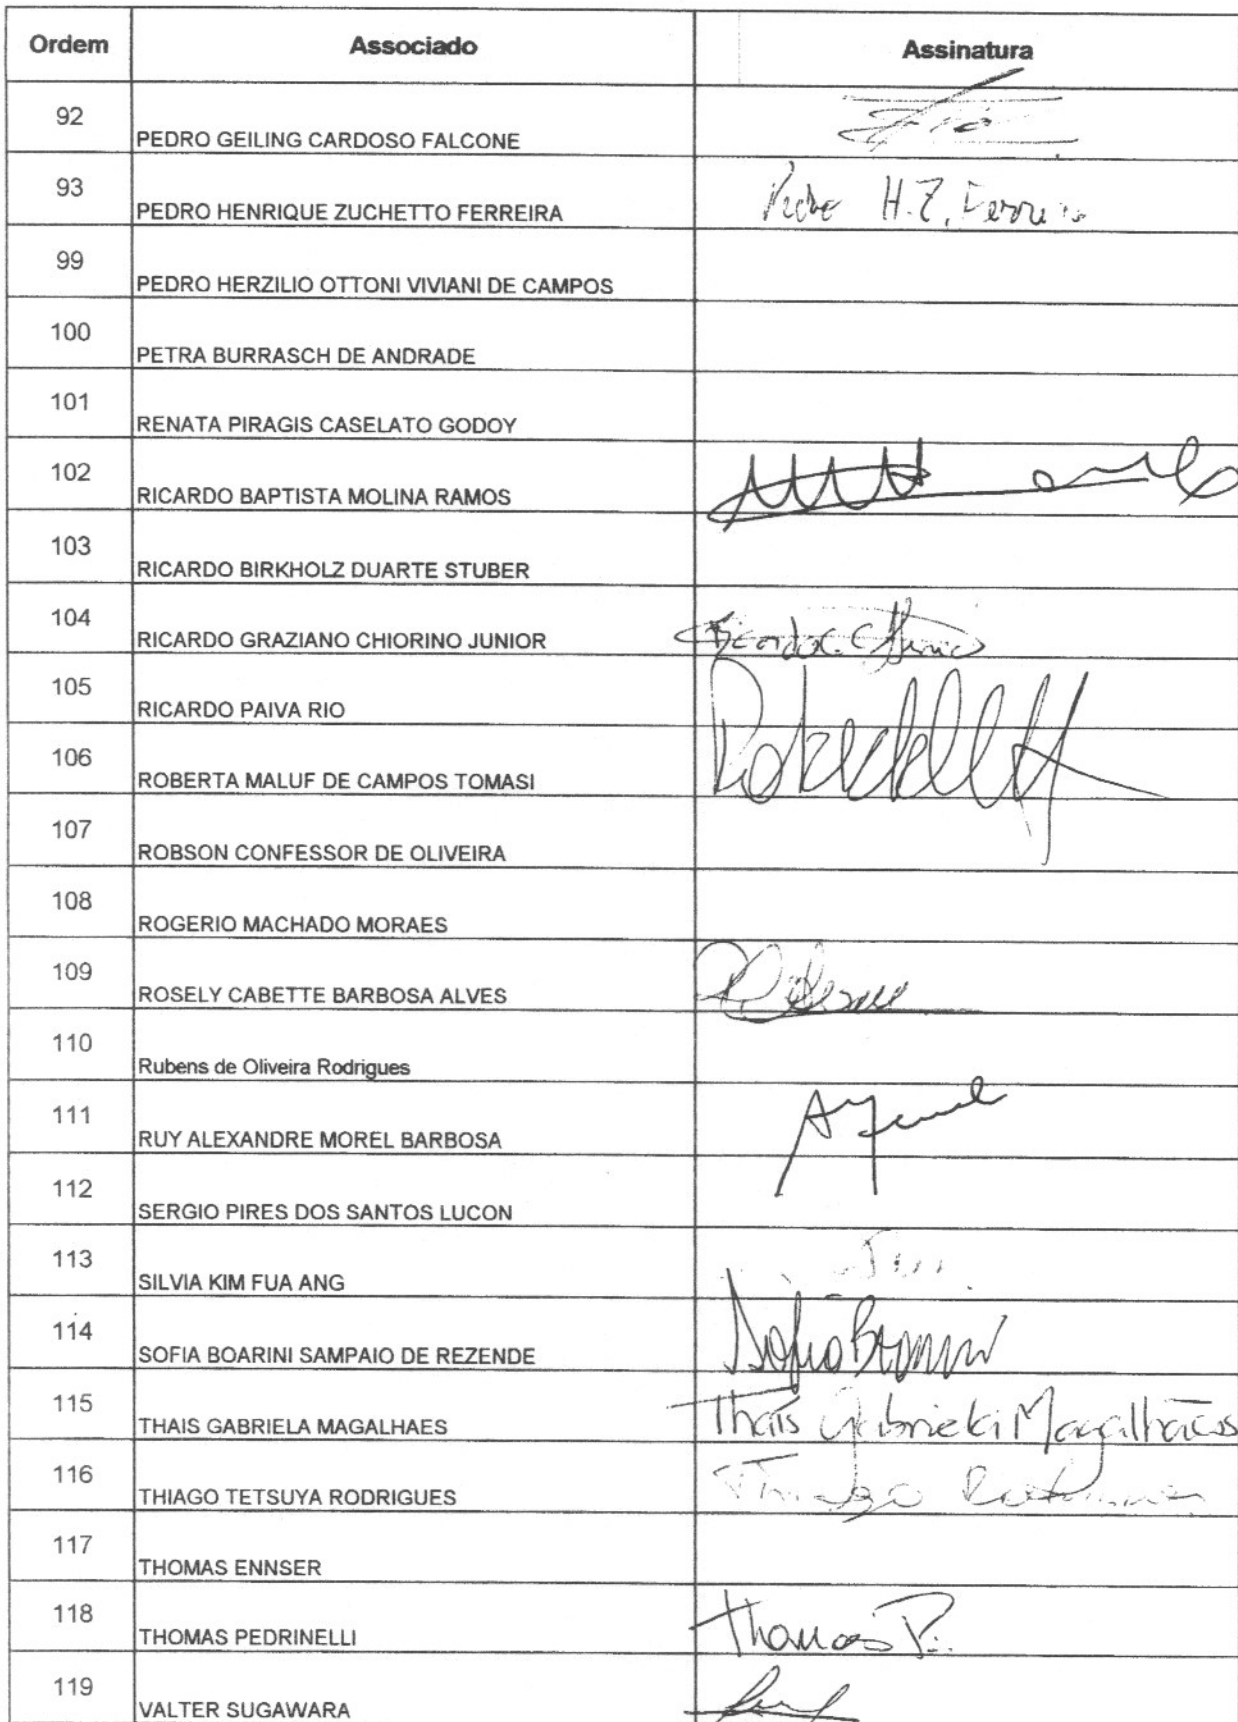 Ordem Associado Assinatura
92 PEDRO GEILING CARDOSO FALCONE
93 PEDRO HENRIQUE ZUCHETTO FERREIRA Pedro H.Z. Ferreira
99 PEDRO HERZILIO OTTONI VIVIANI DE CAMPOS
100 PETRA BURRASCH DE ANDRADE
101 RENATA PIRAGIS CASELATO GODOY
102 RICARDO BAPTISTA MOLINA RAMOS
103 RICARDO BIRKHOLZ DUARTE STUBER
104 RICARDO GRAZIANO CHIORINO JUNIOR
105 RICARDO PAIVA RIO
106 ROBERTA MALUF DE CAMPOS TOMASI
107 ROBSON CONFESSOR DE OLIVEIRA
108 ROGERIO MACHADO MORAES
109 ROSELY CABETTE BARBOSA ALVES
110 Rubens de Oliveira Rodrigues
111 RUY ALEXANDRE MOREL BARBOSA
112 SERGIO PIRES DOS SANTOS LUCON
113 SILVIA KIM FUA ANG
114 SOFIA BOARINI SAMPAIO DE REZENDE
115 THAIS GABRIELA MAGALHAES Thais Gabriela Magalhães
116 THIAGO TETSUYA RODRIGUES Thiago
117 THOMAS ENNSER
118 THOMAS PEDRINELLI Thomas P.
119 VALTER SUGAWARA